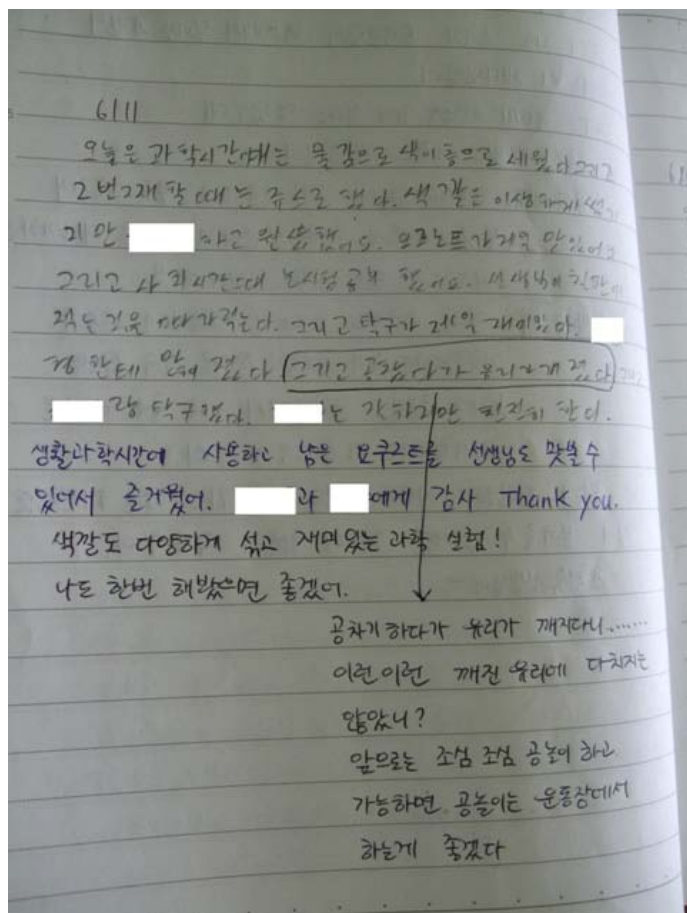 6/11
오늘은 과학시간에는 물감으로 색이 층으로 세웠다 그리고
2번째 할 때는 쥬스로 했다. 색깔은 이상하게
지만 하고
그리고 사회시간 때 했어요. 선생님이 칠판에
적는 것을 따라 적는다. 그리고 탁구가 제일 재미있다.
한테 졌다 그리고 공찼다가 유리가 깨졌다
랑 탁구했다. 는
생활과학시간에 사용하고 남은 요쿠르트를 선생님도 맛볼 수
있어서 즐거웠어. 과 에게 감사 Thank you.
색깔도 다양하게 섞고 재미있는 과학 실험!
나도 한번 해봤으면 좋겠어.
공차기 하다가 유리가 깨지다니......
이런 이런 깨진 유리에 다치지는
않았니?
앞으로는 조심 조심 공놀이 하고
가능하면 공놀이는 운동장에서
하는게 좋겠다